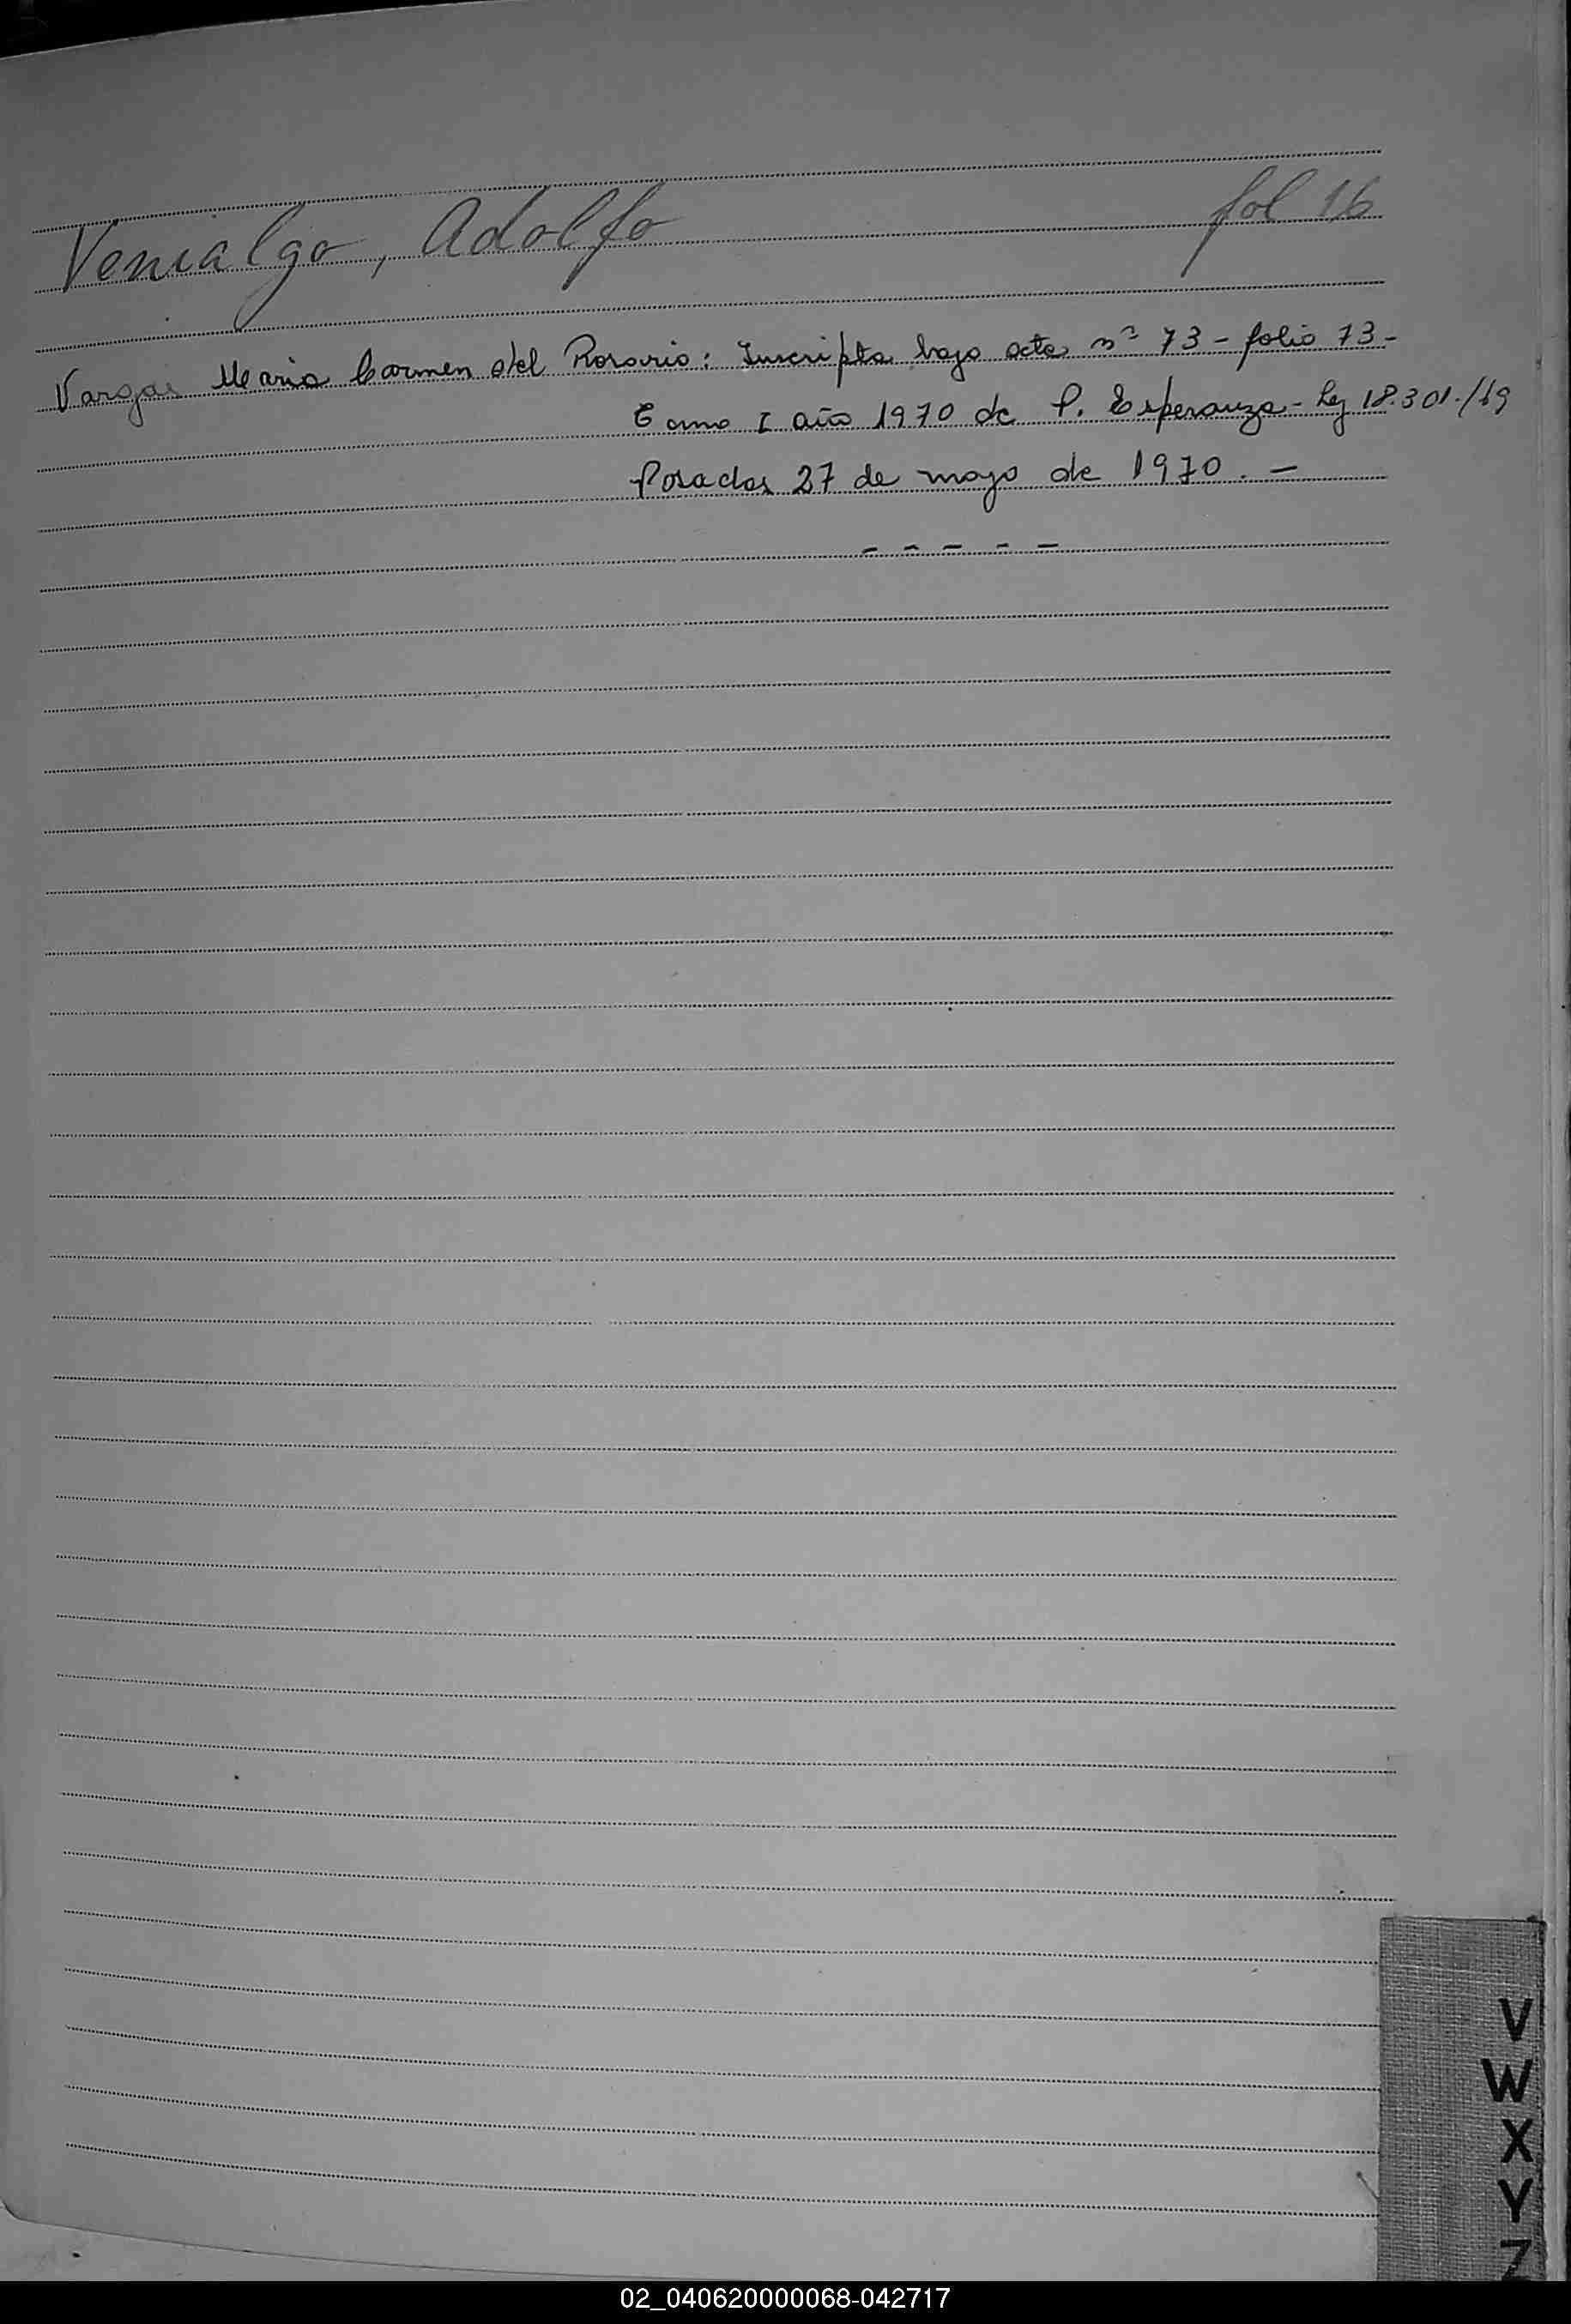 Venialgo, Adolfo fol 16
Vargas Maria Carmen del Rosario: Inscripta bajo acta nº 73 - folio 73 -
Tomo I año 1970 de P. Esperanza - Ley 18.301./69
Posadas 27 de mayo de 1970. —
- - - - -
V
W
X
Y
Z
02_040620000068-042717